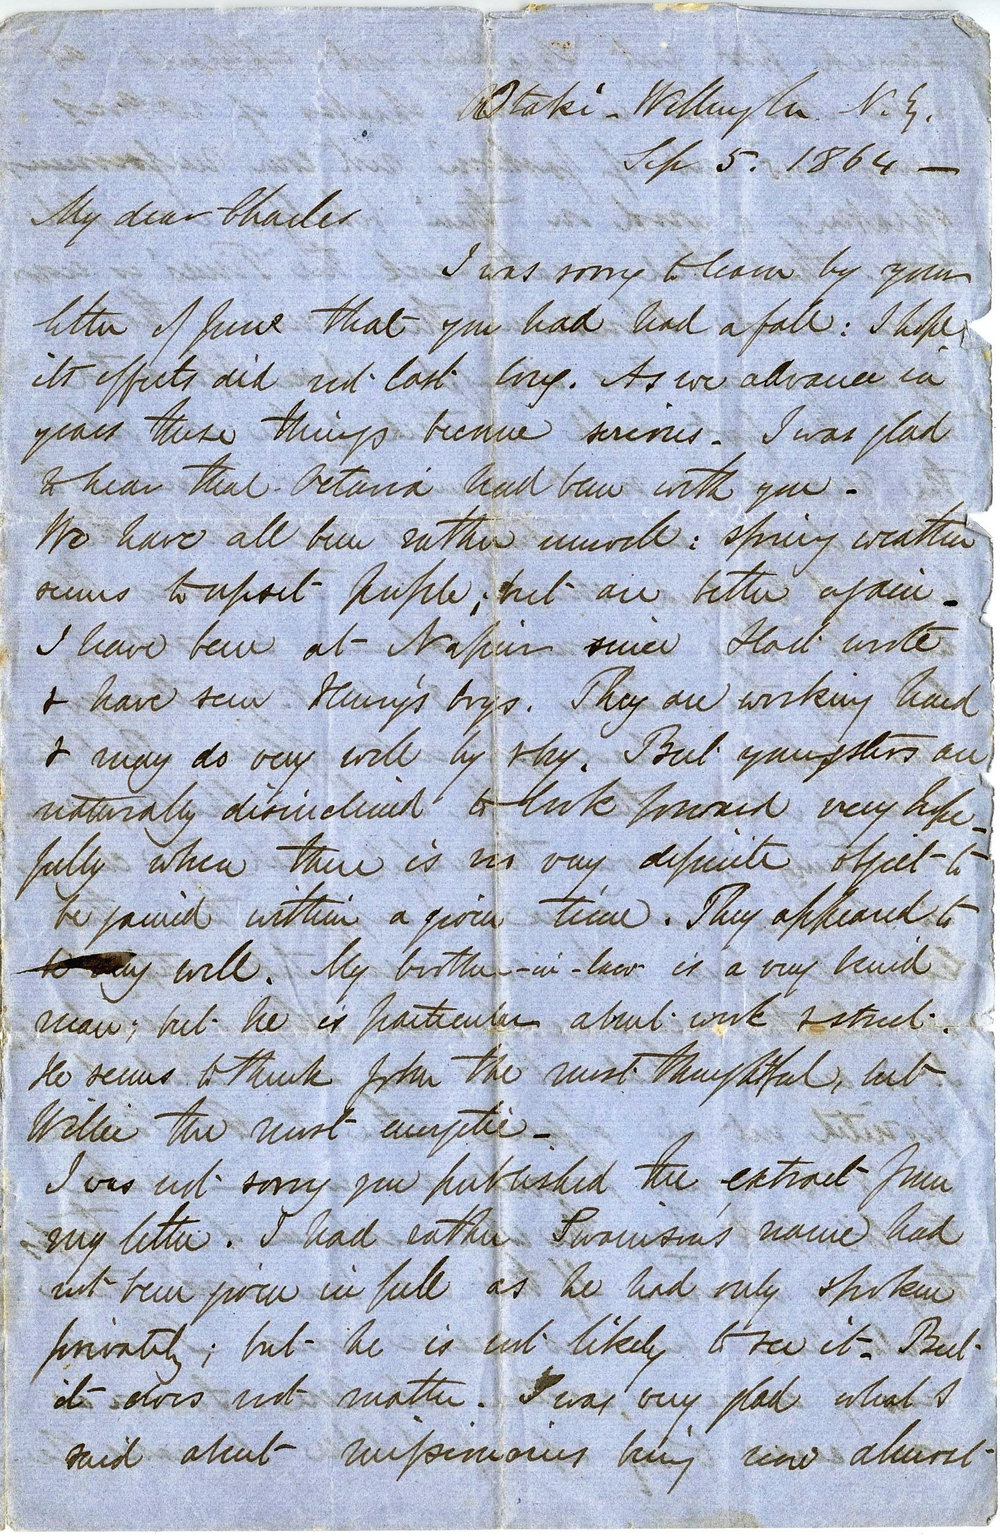 Otaki - Wellington N.Z.
Sep 5. 1864 —
My dear Charles
I was sorry to learn by your
letter of June that you had had a fall: I hope
its effects did not last long. As we advance in
years these things become serious - I was glad
to hear that Octavia had been with you -
We have all been rather unwell: spring weather
seems to upset people; but are better again -
I have been at Napier since Had wrote
& have seen Henry's boys. They are working hard
& may do very well by & by. But youngsters are
naturally disinclined to look forward very hope-
fully when there is no very definite object to
be gained within a given time. They appeared to
be very well. My brother-in-law is a very kind
man; but he is particular about work & strict.
He seems to think John the most thoughtful, but
Willie the most energetic -
I was not sorry you published the extract from
my letter. I had rather Swainson's name had
not been given in full as he had only spoken
privately; but he is not likely to see it - But
it does not matter. I was very glad what I
said about missionaries being now almost